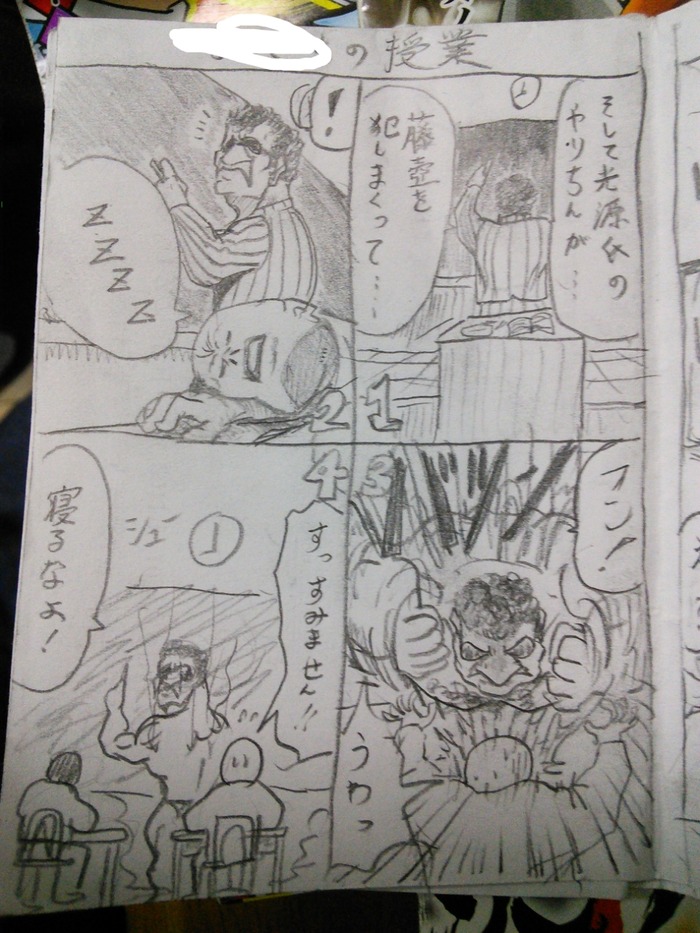 の授業
①
そして光源氏の
やりちんが…
藤壺を
犯しまくって……
1
!
ZZZZ
2
フン!
バリバリ
3
うわっ
4
すっすみません!!
シュー
①
寝るなよ!